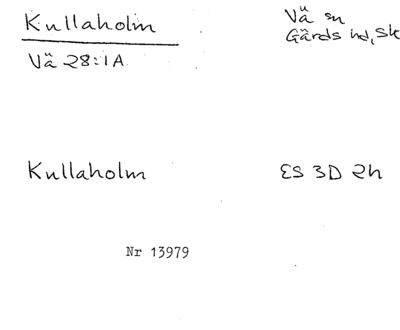 Kullaholm
Vä sn
Gärds hd, Sk
Vä 28:1A
Kullaholm
ES 3D 2h
Nr 13979